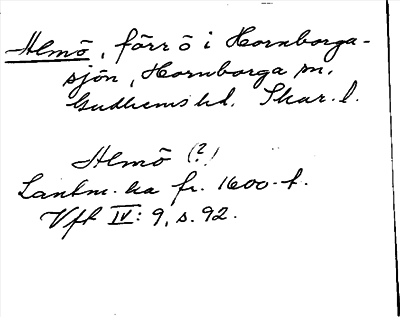 Almö, förr ö i Hornborga-
sjön, Hornborga sn,
Gudhems hd. Skar. l.
Almö (?)
Lantm. ka fr. 1600-t.
Vft IV: 9, s. 92.